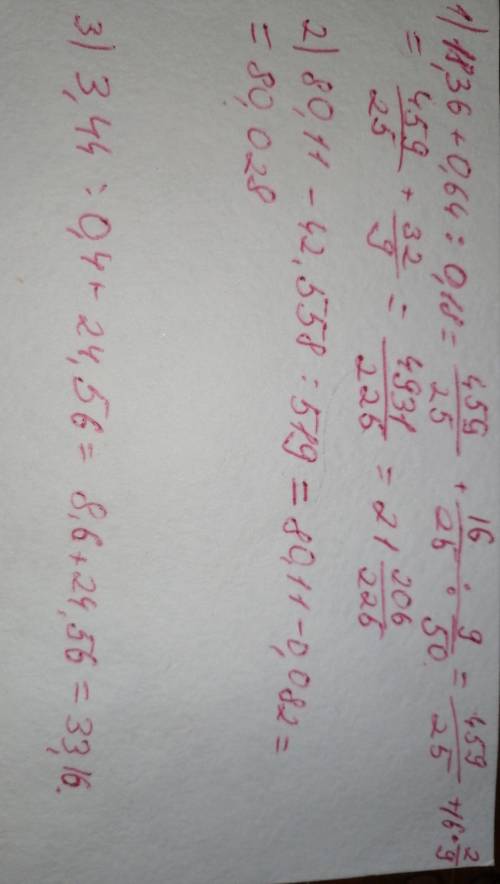 1) 18,36 + 0,64 : 0,18 = 459/25 + 16/25 : 9/50 = 459/25 + 16 · 2/9
= 459/25 + 32/9 = 4931/225 = 21 206/225
2) 80,11 - 42,558 : 519 = 80,11 - 0,082 =
= 80,028
3) 3,44 : 0,4 + 24,56 = 8,6 + 24,56 = 33,16.